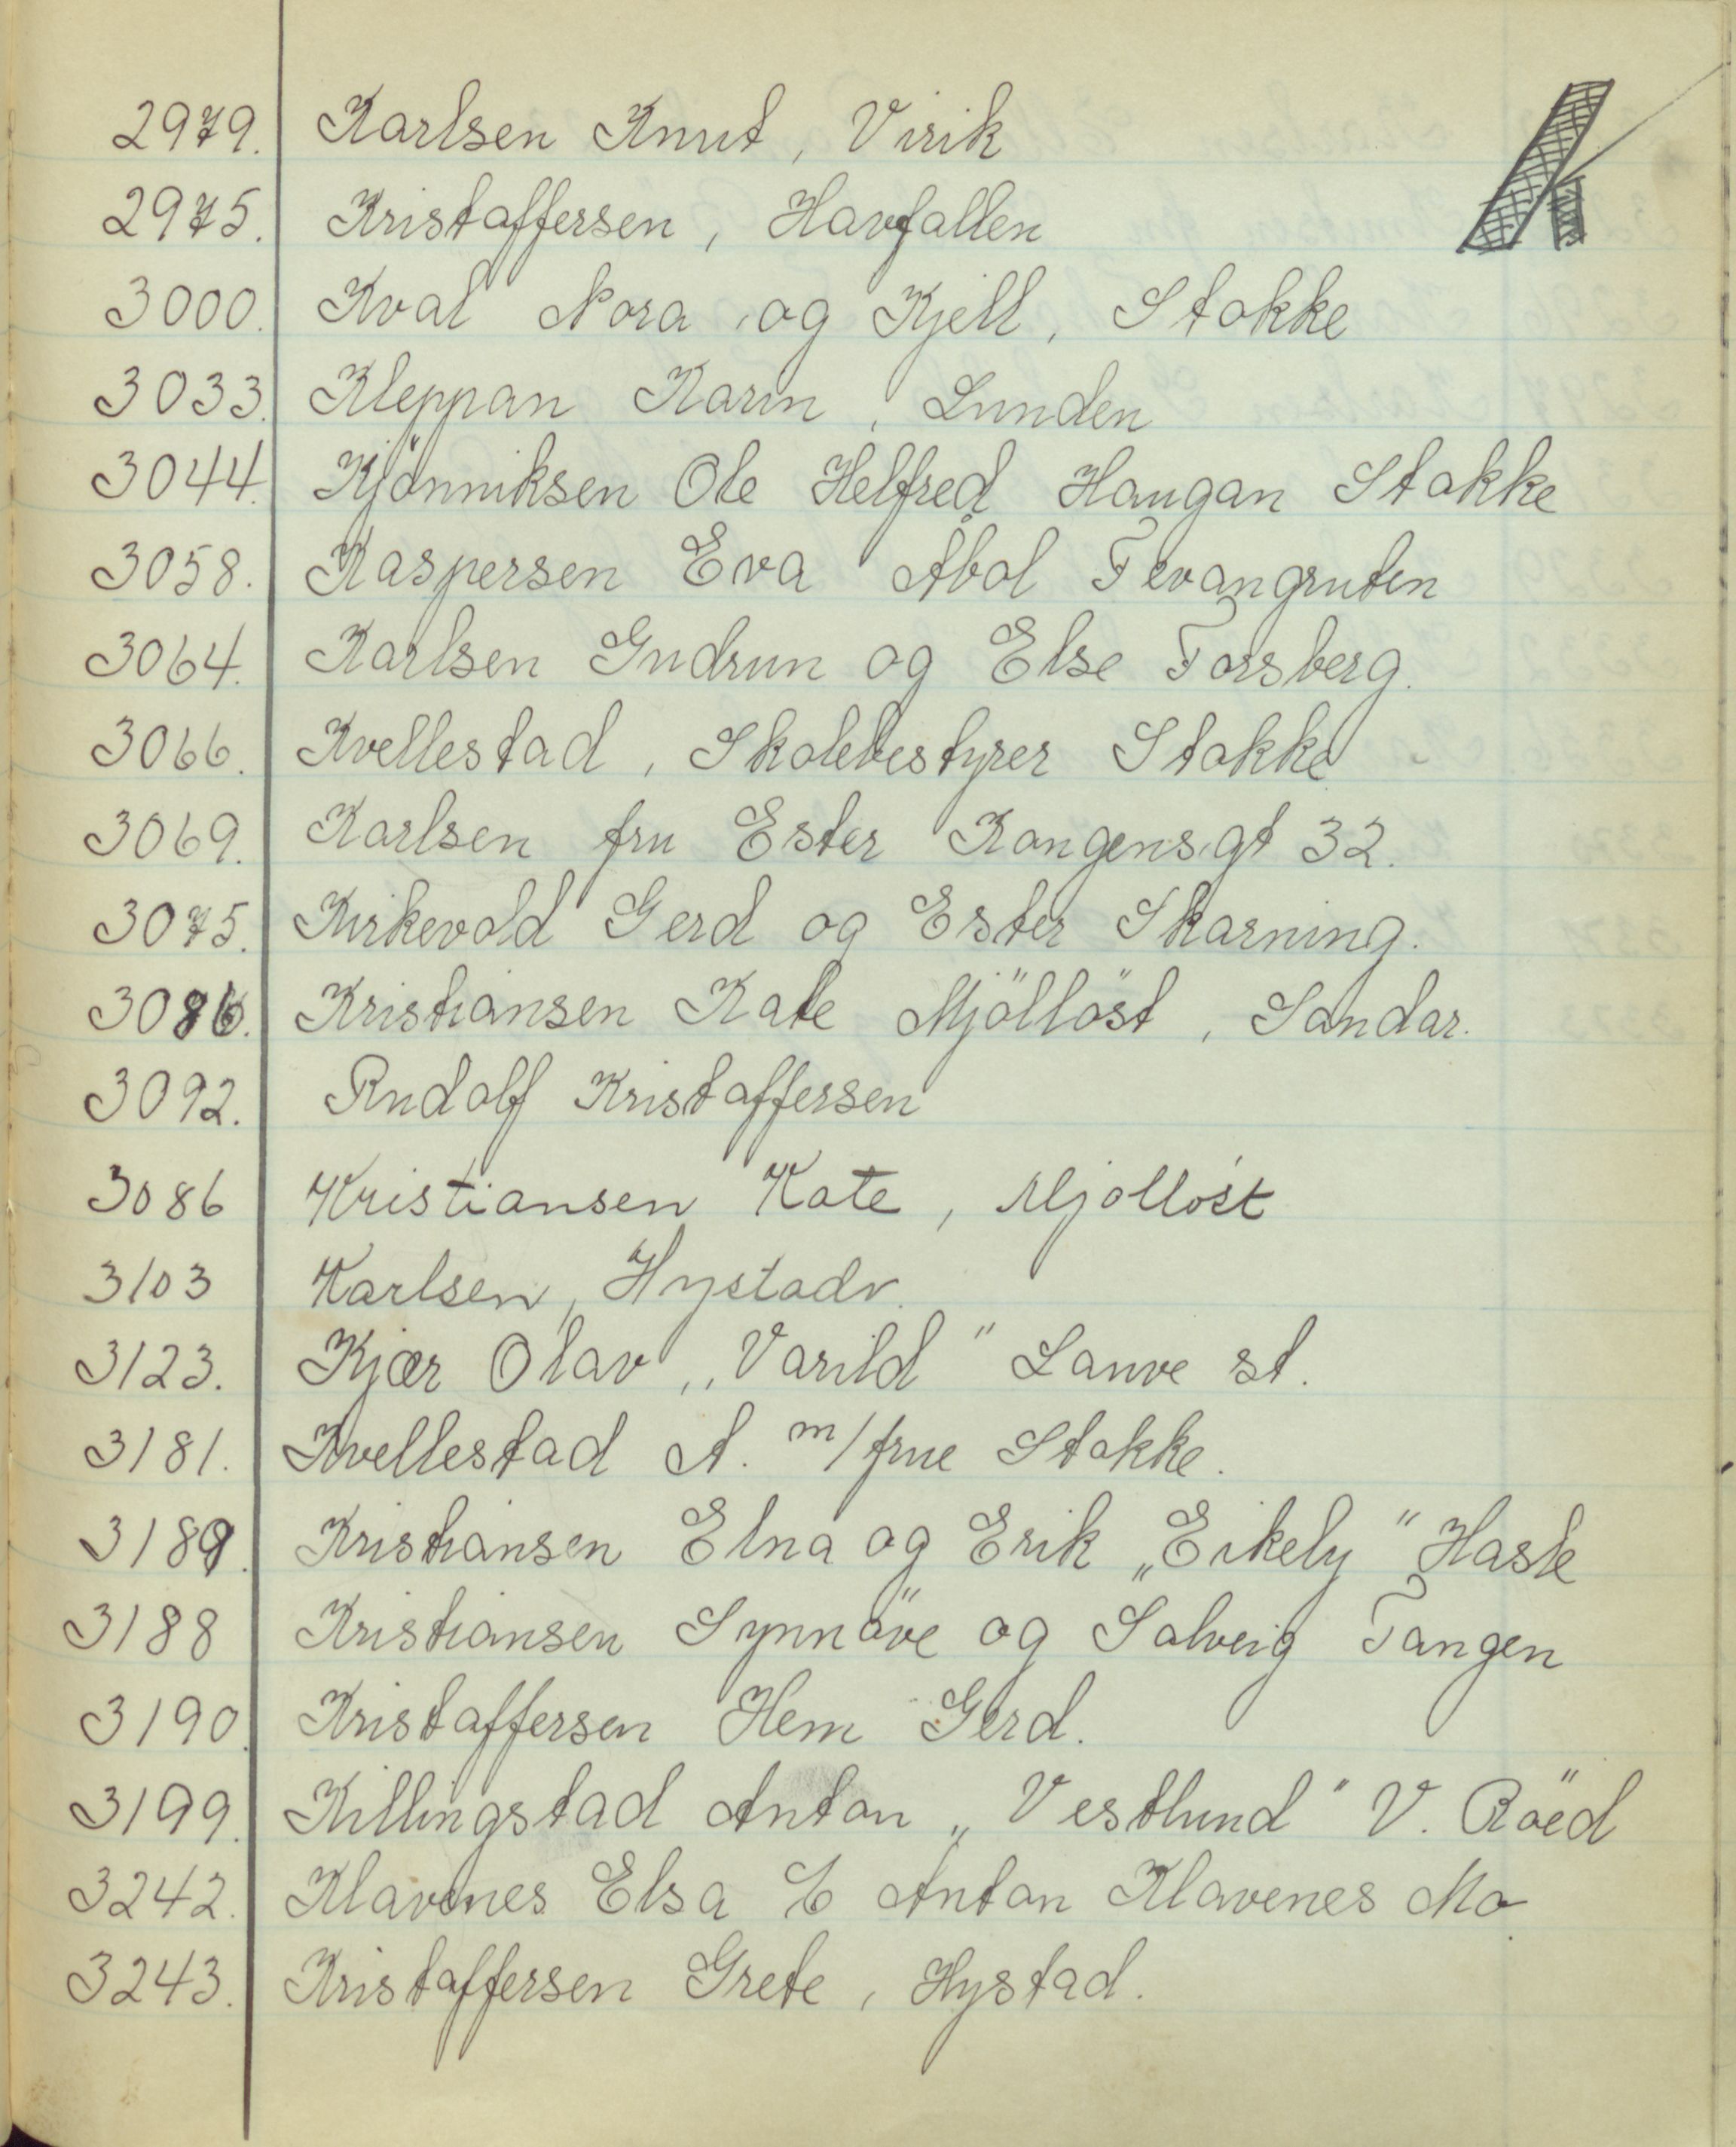 K
2979. Karlsen Knut, Virik
2975. Kristoffersen, Havfallen
3000. Kval Nora og Kjell, Stokke
3033. Kleppan Karin, Lunden
3044. Kjönniksen Ole Helfred Haugan Stokke
3058. Kaspersen Eva Åbol Fevangruten
3064. Karlsen Gudrun og Else Forsberg.
3066. Kvellestad, Skolebestyrer Stokke
3069. Karlsen fru Ester Kongensgt 32.
3075. Kirkevold Gerd og Ester Skorning.
3086. Kristiansen Kate Mjölløst, Sandar.
3092. Rudolf Kristoffersen
3086 Kristiansen Kate, Mjolløst
3103 Karlsen, Hystadv.
3123. Kjær Olav „Varild" Lauve st.
3181. Kvellestad A. m/frue Stokke.
3189. Kristiansen Elna og Erik „Eikely" Hasle
3188 Kristiansen Synnöve og Solveig Tangen
3190. Kristoffersen Hem Gerd.
3199. Killingstad Anton „Vestlund" V. Röed
3242. Klavenes Elsa & Anton Klavenes Mo
3243. Kristoffersen Grete, Hystad.